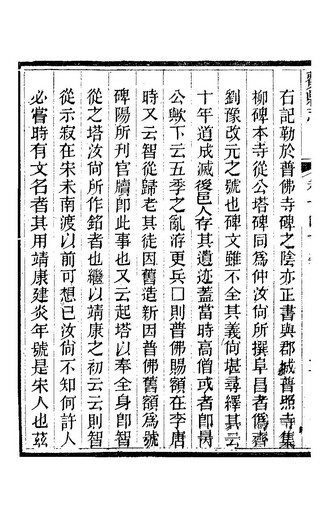 右記勒於普佛寺碑之陰亦正書與郡城普照寺集
柳碑本寺從公塔碑同為仲汝尚所撰阜昌者偽齊
劉豫改元之號也碑文雖不全其義尚堪尋繹其云
十年道成滅後邑人存其遺迹蓋當時高僧或者即昊
公歟下云五季之亂游更兵□則普佛賜額在李唐
時又云智從歸老其徒因舊造新因普佛舊額為號
碑陽所刊官牘即此事也又云起塔以奉全身卽智
從之塔汝尚所作銘者也繼以靖康之初云云則智
從示寂在宋未南渡以前可想已汝尚不知何許人
必嘗時有文名者其用靖康建炎年號是宋人也茲